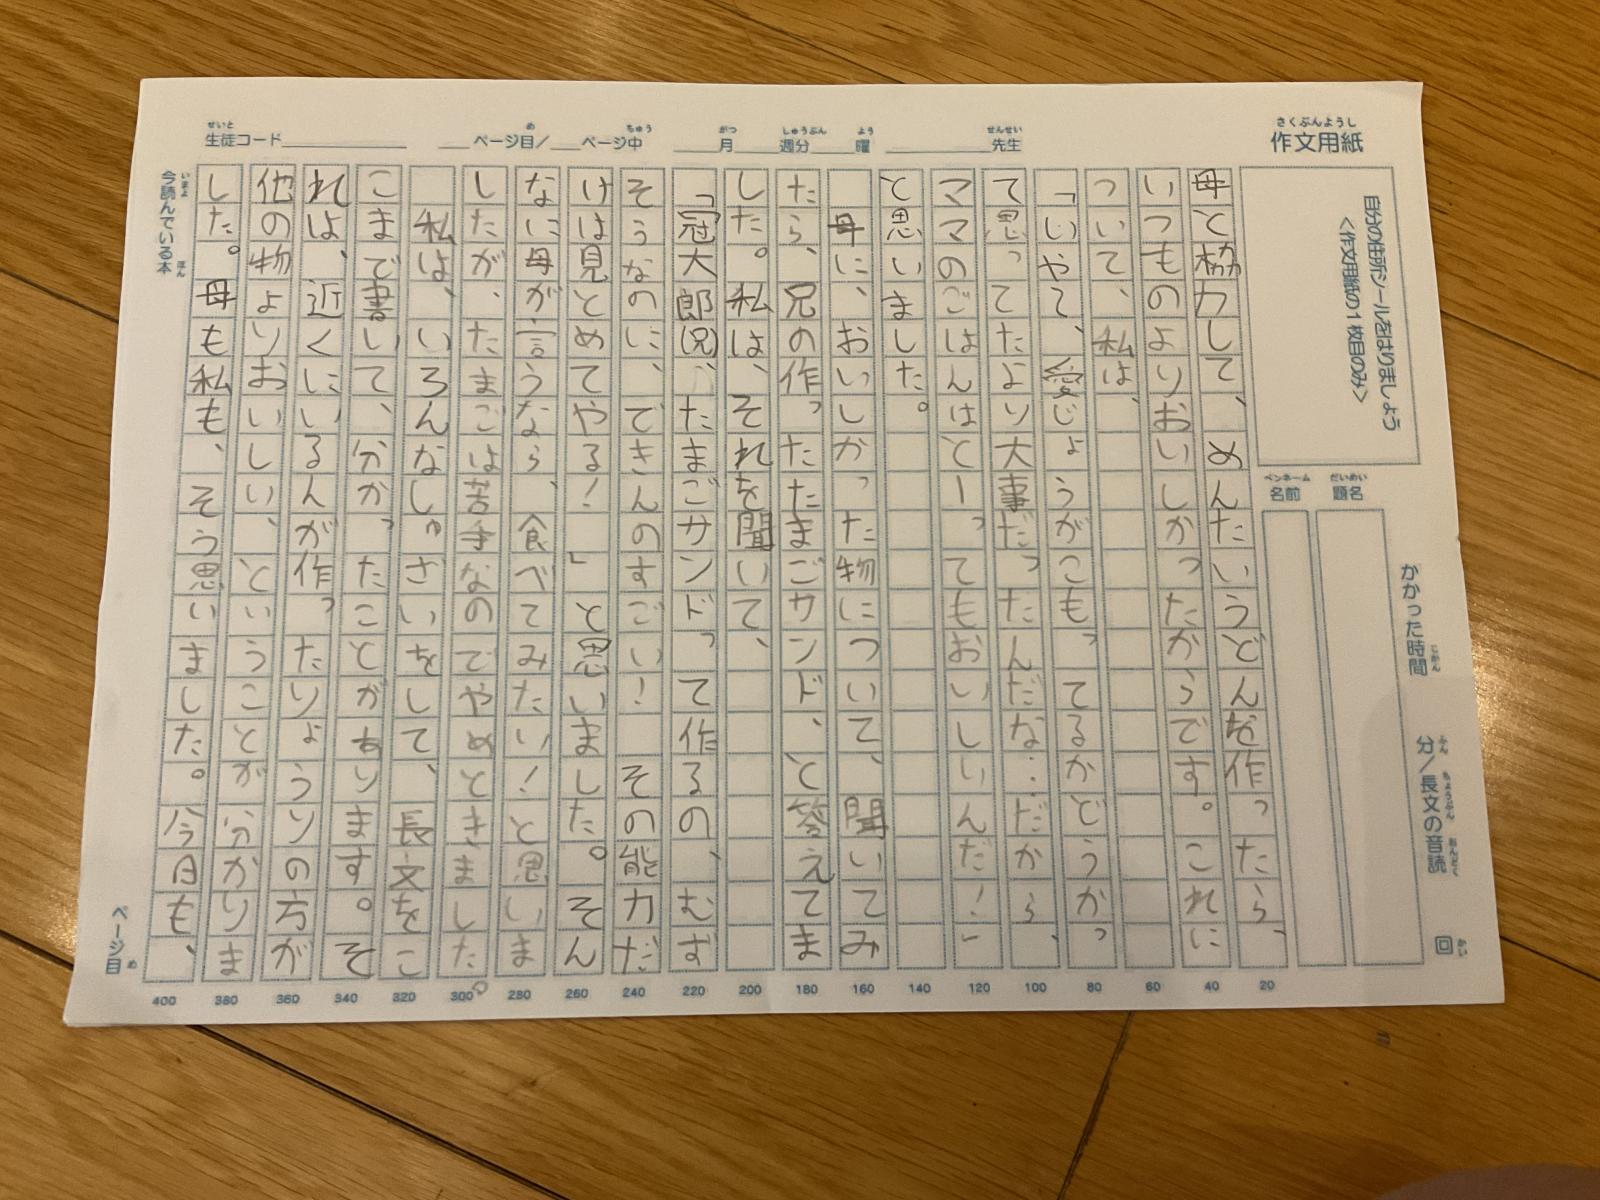 作文用紙
さくぶんようし
生徒コード
せいと
ページ目/ ページ中
め
ちゅう
月 週分 曜
がつ
しゅうぶん
よう
先生
せんせい
自分の住所シールをはりましょう
<作文用紙の1枚目のみ>
題名
だいめい
名前
ペンネーム
かかった時間 分/長文の音読 回
じかん
ふん
ちょうぶん
おんどく
かい
母と協力して、めんたいうどんを作ったら、
いつものよりおいしかったからです。これに
ついて、私は、
「いやて、愛じょうがこもってるかどうかっ
て思ってたより大事だったんだな…だから、
ママのごはんはとーってもおいしいんだ!」
と思いました。
母に、おいしかった物について、聞いてみ
たら、兄の作ったたまごサンド、と答えてま
した。私は、それを聞いて、
「冠大郎(兄)、たまごサンドって作るの、むず
そうなのに、できんのすごい! その能力だ
けは見とめてやる!」と思いました。そん
なに母が言うなら、食べてみたい!と思いま
したが、たまごは苦手なのでやめときました。
私は、いろんなしゅざいをして、長文をこ
こまで書いて、分かったことがあります。そ
れは、近くにいるんが作ったりょうりの方が
他の物よりおいしい、ということが分かりま
した。母も私も、そう思いました。今日も、
20
40
60
80
100
120
140
160
180
200
220
240
260
280
300
320
340
360
380
400
今読んでいる本
いまよ
ほん
ページ目
め